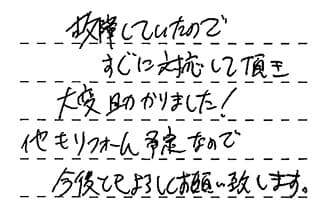 故障していたので
すぐに対応して頂き
大変助かりました!
他もリフォーム予定なので
今後ともよろしくお願い致します。